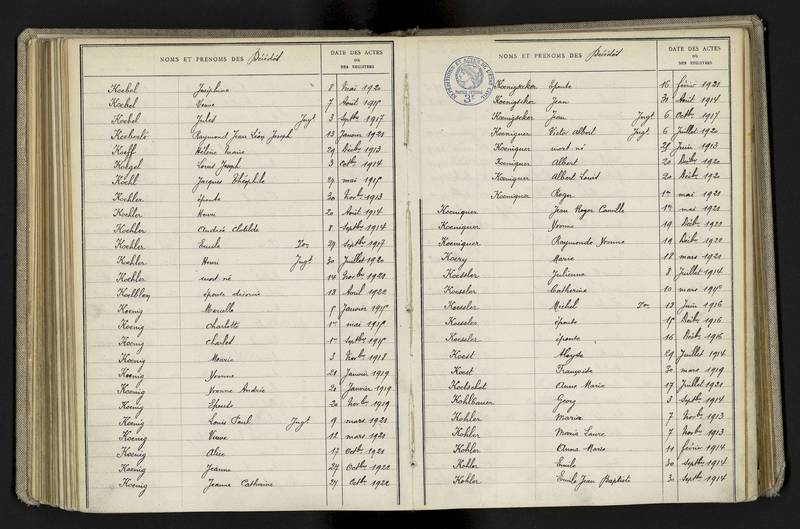 NOMS ET PRENOMS DES Décédés
DATE DES ACTES
OU
DES REGISTERES
Koebel Joséphine 8 Mai 1920
Koebel Veuve 7 Août 1915
Koebel Jules Jugt 3 Septbre 1917
Raymond Jean Léon Joseph 13 Janvier 1921
Koeff Hélène Marie 29 Décbre 1913
Koegel Louis Joseph 3 Octbre 1914
Koehl Jacques Théophile 27 mai 1915
Koehler épouse 30 Novbre 1913
Koehler Henri 20 Août 1914
Koehler Andrée Clotilde 8 Septbre 1914
Koehler Emile Ton 29 Septbre 1917
Koehler Henri Jugt 30 Juillet 1920
Koehler mort né 14 Novbre 1920
Koelblen épouse divorcée 18 Avril 1922
Koenig 5 Janvier 1915
Koenig Charlotte 1er mai 1915
Koenig Charles 1er Septbre 1915
Koenig Marie 3 Novbre 1918
Koenig Yvonne 21 Janvier 1919
Koenig Yvonne Andrée 20 Janvier 1919
Koenig Epouse 20 Novbre 1919
Koenig Louis Paul Jugt 9 mars 1921
Koenig Veuve 12 mars 1921
Koenig Alice 17 Octbre 1921
Koenig Jeanne 24 Octbre 1922
Koenig Jeanne Catherine 24 Octbre 1922
NOMS ET PRÉNOMS DES Décédés
DATE DES ACTES
OU
DES REGISTRES
3F
Koenigteker Epouse 16 févrir 1921
Koenigteker Jean 31 Août 1914
Koenigteker Jean Jugt 6 Octbre 1917
Koeniguer Victor Albert Jugt 6 Juillet 1920
Koeniguer mort né 25 Juin 1913
Koeniguer Albert 20 Décbre 1920
Koeniguer Albert Louis 20 Décbre 1920
Koeniguer Roger 1er mai 1921
Koeniguer Jean Roger Camille 1er mai 1921
Koeniguer Yvonne 19 Décbre 1922
Koeniguer Raymonde Yvonne 19 Décbre 1922
Koery Marie 18 mars 1920
Koessler Julienne 8 Juillet 1914
Koessler Catherine 10 mars 1915
Koessler Michel Ton 13 Juin 1916
Koessler épouse 15 Décbre 1916
Koessler épouse 16 Décbre 1916
Koest Aloyse 29 Juillet 1914
Koest Françoise 30 mars 1919
Koetschet Anne Marie 17 Juillet 1921
Kohlbauer Georg 3 Septbre 1914
Kohler Maria 7 Novbre 1913
Kohler Maria Laure 7 Novbre 1913
Kohler Anna Marie 11 février 1914
Kohler Emile 30 Septbre 1914
Kohler Emile Jean Baptiste 30 Septbre 1914